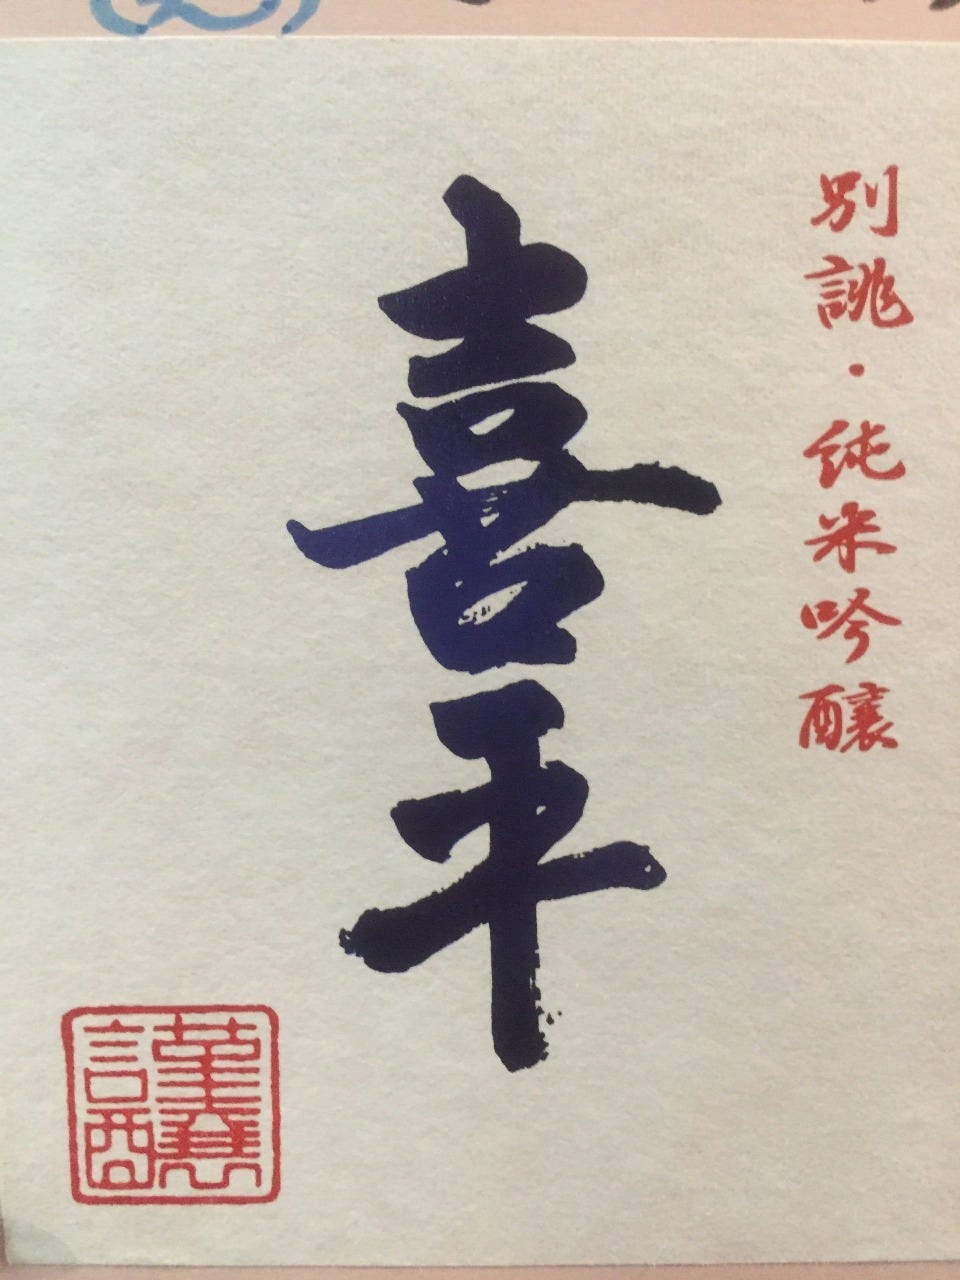 別誂・純米吟醸
喜平
謹醸